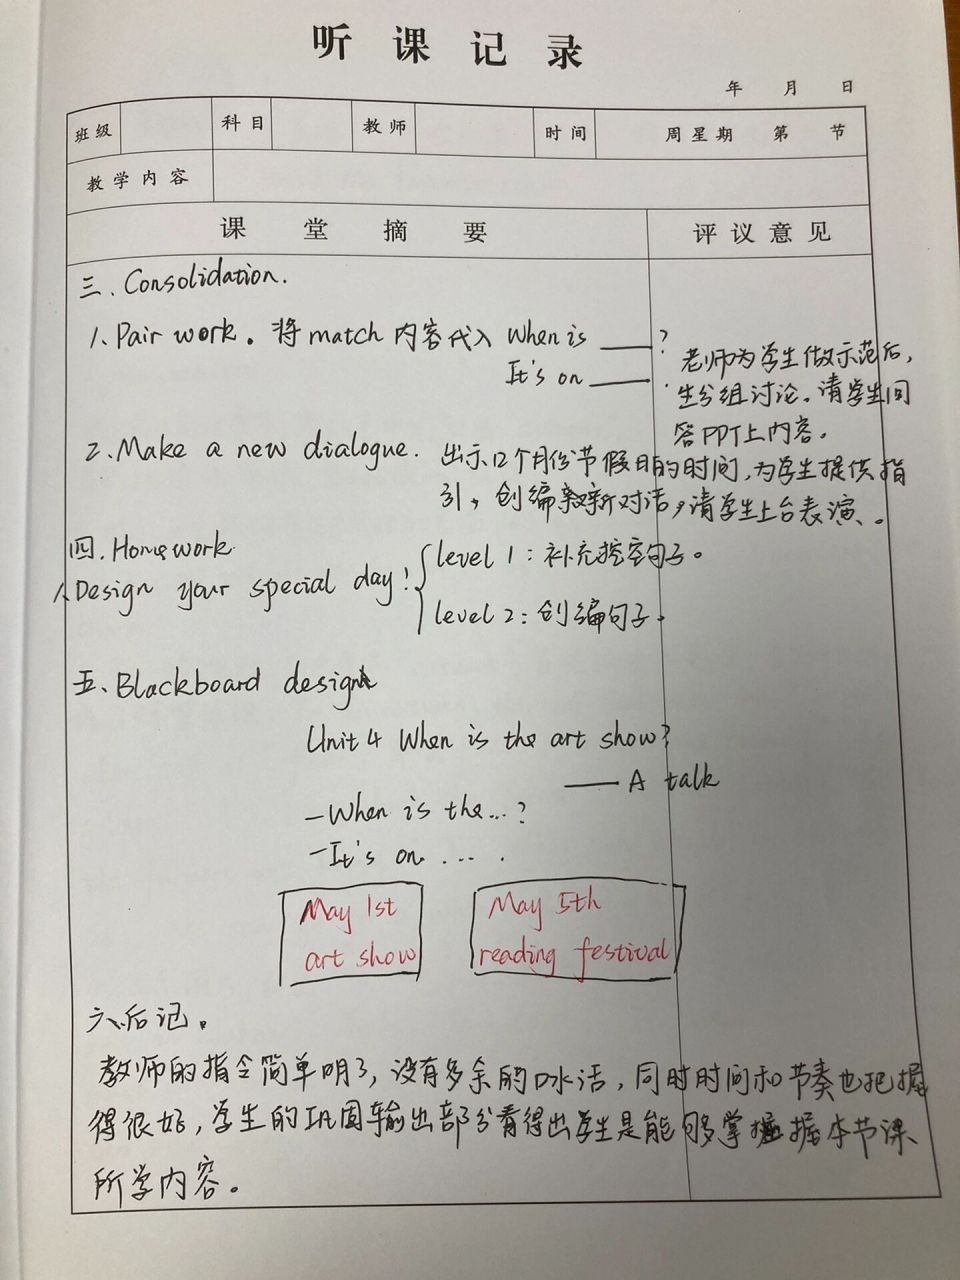 听课记录
年 月 日
班级 科目 教师 时间 周星期 第 节
教学内容
课堂摘要 评议意见
三. Consolidation.
1. Pair work. 将match内容代入 When is ____?
It's on ____.
老师为学生做示范后,
生分组讨论。请学生回
答PPT上内容。
2. Make a new dialogue. 出示12个月份节假日的时间,为学生提供指
引,创编新对话,请学生上台表演、。
四. Homework
1. Design your special day!
level 1: 补充挖空句子。
level 2: 创编句子.
五、Blackboard design
Unit 4 When is the art show?
—— A talk
-When is the...?
-It's on ... .
May 1st
art show
May 5th
reading festival
六.后记。
教师的指令简单明了,没有多余的口水话,同时时间和节奏也把握
得很好,学生的巩固输出部分看得出学生是能够掌握本节课
所学内容。